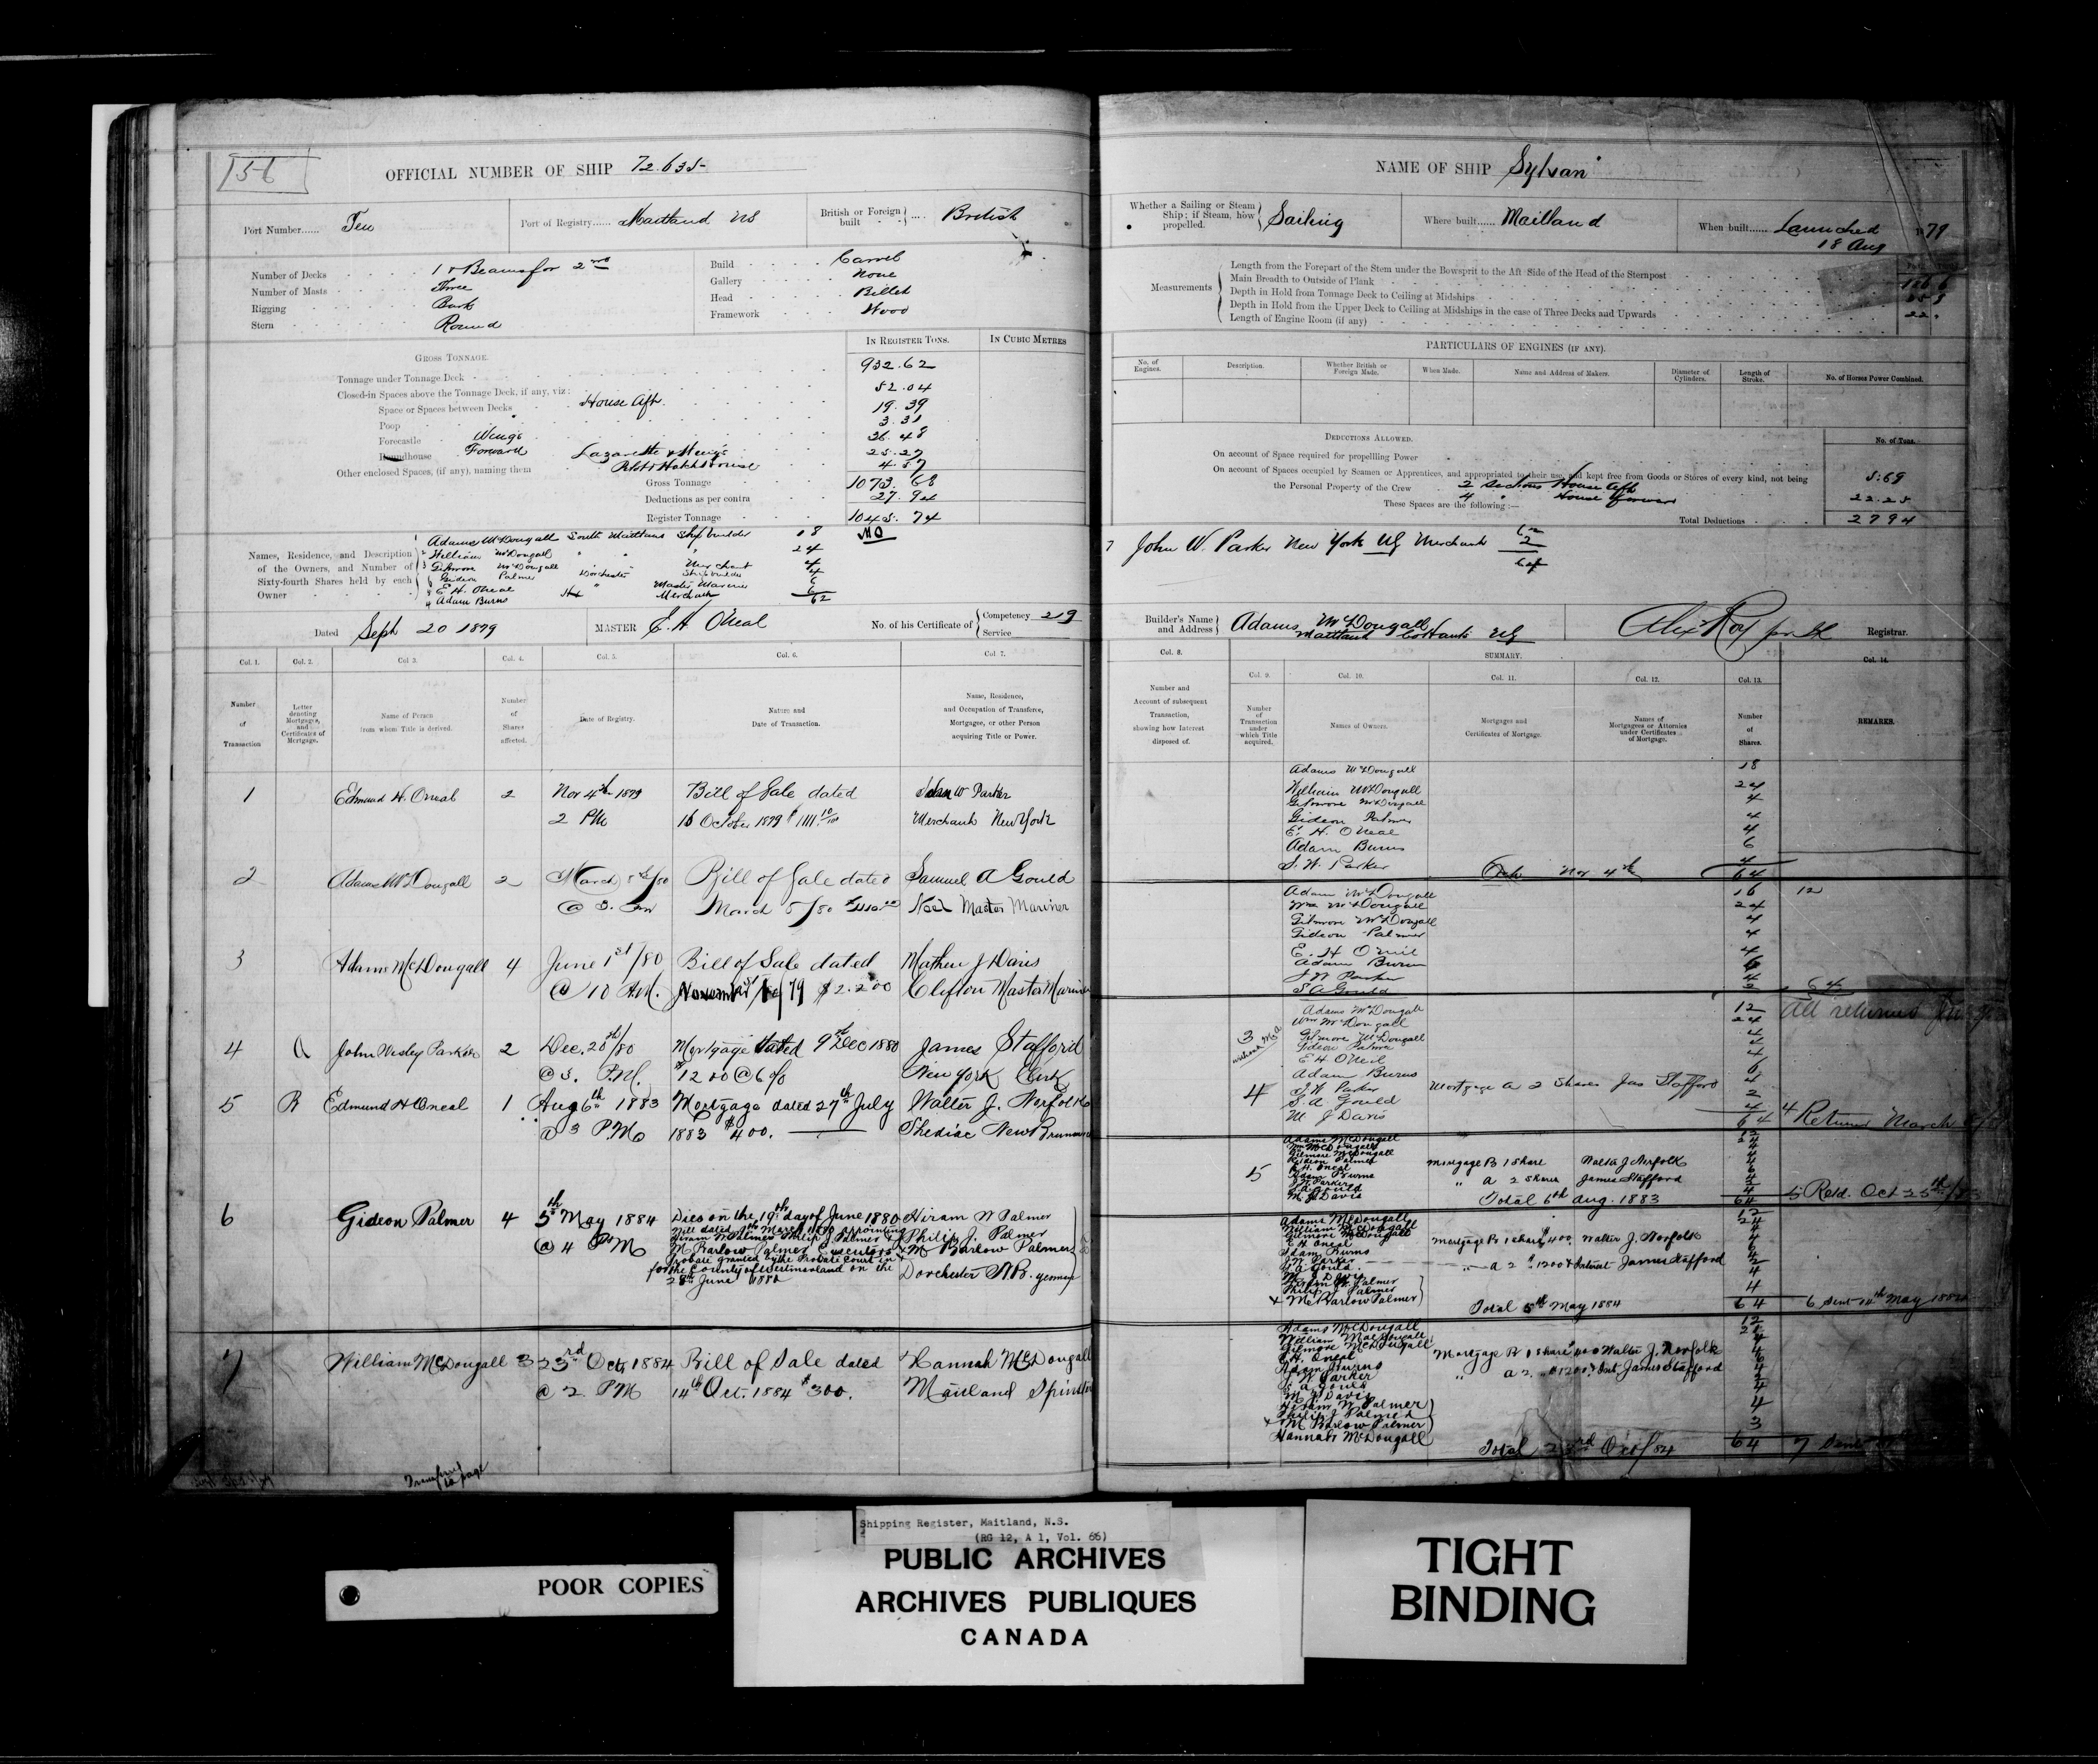 156
OFFICIAL NUMBER OF SHIP 72.635
Port Number...... Ten
Port of Registry...... Maitland NS
British or Foreign built .... British
Number of Decks 1 & Beams for 2nd
Number of Masts Three
Rigging Bark
Stern Round
Build Carvel
Gallery None
Head Billet
Framework Wood
IN REGISTER TONS. IN CUBIC METRES
GROSS TONNAGE.
Tonnage under Tonnage Deck 932.62
Closed-in Spaces above the Tonnage Deck, if any, viz:
Space or Spaces between Decks House Aft. 52.04
Poop 19.39
Forecastle Wings 3.31
Roundhouse Forward 36.48
Other enclosed Spaces, (if any), naming them Lazarette & Wings 25.27
Hatch House 4.57
Gross Tonnage 1073.68
Deductions as per contra 27.94
Register Tonnage 1045.74
Names, Residence, and Description of the Owners, and Number of Sixty-fourth Shares held by each Owner
1 Adams McDougall South Maitland Ship builder 18
2 William McDougall " " " 24
3 Gilmore McDougall " Merchant 4
Gideon Palmer Dorchester Ship builder 4
E. H. ONeal " Master Mariner 6
Adam Burns Merchant 6
62
Dated Sept 20 1879
MASTER E. H. O'Neal
No. of his Certificate of Competency 219
Service
Col. 1. Col. 2. Col. 3. Col. 4. Col. 5. Col. 6. Col. 7.
Number of Transaction
Letter denoting Mortgages, and Certificates of Mortgage.
Name of Person from whom Title is derived.
Number of Shares affected.
Date of Registry.
Nature and Date of Transaction.
Name, Residence, and Occupation of Transferee, Mortgagee, or other Person acquiring Title or Power.
1 Edmund H. Oneal 2 Nov 4th 1879 Bill of Sale dated John W Parker
2 PM 16 October 1879 $1111 10/100 Merchant New York
2 Adams McDougall 2 March 8th/80 Bill of Sale dated Samuel A Gould
@ 3. March 5/80 Noel Master Mariner
3 Adams McDougall 4 June 1st/80 Bill of Sale dated Mathew J Davis
@ 10 A.M. November 79 $2.200 Clifton Master Mariner
4 A John Wesley Parker 2 Dec. 20th/80 Mortgage dated 9th Dec 1880 James Stafford
@ 3. P.M. $1200 @ 6% New York Clerk
5 B Edmund H Oneal 1 Aug 6th 1883 Mortgage dated 27th July Walter J. Norfolk
@ 3 P.M. 1883 $400. Shediac New Brunswick
6 Gideon Palmer 4 5th May 1884 Dies on the 19th day of June 1880 Hiram W Palmer
@ 4 PM Will dated March 1880 appointing Philip J. Palmer
Hiram W Palmer Philip J Palmer & + M Barlow Palmer
M Barlow Palmer Executors
Probate granted by the Probate Court in
for the County of Westmorland on the Dorchester N.B. yeomen
28th June 1880
7 William McDougall 3 23rd Oct, 1884 Bill of Sale dated Hannah McDougall
@ 2 PM 14th Oct. 1884 $300. Maitland Spinster
Transferred to page
NAME OF SHIP Sylvan
Whether a Sailing or Steam Ship; if Steam, how propelled. Sailing
Where built...... Maitland
When built...... Launched 18 Aug 79
Measurements
Length from the Forepart of the Stem under the Bowsprit to the Aft Side of the Head of the Sternpost
Main Breadth to Outside of Plank
Depth in Hold from Tonnage Deck to Ceiling at Midships
Depth in Hold from the Upper Deck to Ceiling at Midships in the case of Three Decks and Upwards
Length of Engine Room (if any)
PARTICULARS OF ENGINES (IF ANY).
No. of Engines. Description. Whether British or Foreign Made. When Made. Name and Address of Makers. Diameter of Cylinders. Length of Stroke. No. of Horses Power Combined.
DEDUCTIONS ALLOWED. No. of Tons.
On account of Space required for propelling Power
On account of Spaces occupied by Seamen or Apprentices, and appropriated to their use, and kept free from Goods or Stores of every kind, not being the Personal Property of the Crew
2 Sections House Aft 5.69
These Spaces are the following:— 4 " House Forward 22.25
Total Deductions 27 94
7 John W. Parker New York US Merchant 2
64
Builder's Name and Address Adams McDougall
Maitland Co Hants NS
Alex Roy Registrar.
Col. 8. SUMMARY. Col. 14.
Col. 9. Col. 10. Col. 11. Col. 12. Col. 13.
Number and Account of subsequent Transaction, showing how Interest disposed of.
Number of Transaction under which Title acquired.
Names of Owners.
Mortgages and Certificates of Mortgage.
Names of Mortgagees or Attornies under Certificates of Mortgage.
Number of Shares.
REMARKS.
Adams McDougall 18
William McDougall 24
Gilmore McDougall 4
Gideon Palmer 4
E. H. ONeal 4
Adam Burns 6
J. W. Parker 4
Nov 4th 64
Adam McDougall 16 12
Wm McDougall 24
Gilmore McDougall 4
Gideon Palmer 4
E. H ONeil 4
Adam Burns 6
J W Parker 4
S A Gould 2 64
Adams McDougall 12 All returned
Wm McDougall 24
3 Gilmore McDougall 4
Gideon Palmer 4
E H ONeil 4
Adam Burns 6
4 J W Parker Mortgage A 2 Shares Jas Stafford 4
S. A Gould 2
M J Davis 4
64 4 Return March
Adams McDougall 12
Wm McDougall 24
Gilmore McDougall 4
Gideon Palmer 4
5 E. H. Oneal Mortgage B 1 Share Walter J Norfolk 4
Adam Burns " A 2 Shares James Stafford 6
J W Parker 4
S A Gould 2
M. J. Davis Total 6th Aug. 1883 64 5 Retd. Oct 25th
Adams McDougall 12
William McDougall 24
Gilmore McDougall 4
E H Oneal Mortgage B 1 Share $400, Walter J. Norfolk
Adam Burns
J. W. Parker " A 2 " 1200 & Interest James Stafford
S A Gould
M. J Davis
Hiram W. Palmer
Philip J Palmer
+ M Barlow Palmer 4
Total 5th May 1884 64 6 Sent 14th May 1884
Adams McDougall 12
William MacDougall 21
Gilmore McDougall 4
E H. Oneal Mortgage B 1 Share $400 Walter J. Norfolk
Adam Burns " A 2 " $1200 & Int James Stafford
J W Parker
S. A. Gould
M J Davis
Hiram W Palmer
Philip J Palmer
+ M Barlow Palmer 4
Hannah McDougall 3
Total 23rd Oct/84 64 7 Sent
POOR COPIES
Shipping Register, Maitland, N.S.
(RG 12, A 1, Vol. 66)
PUBLIC ARCHIVES
ARCHIVES PUBLIQUES
CANADA
TIGHT
BINDING